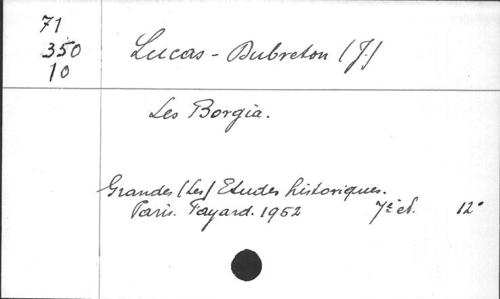 71
350
10
Lucas-Dubreton (J.)
Les Borgia.
Grandes (Les) Etudes historiques.
Paris. Fayard. 1952 7e éd. 12°